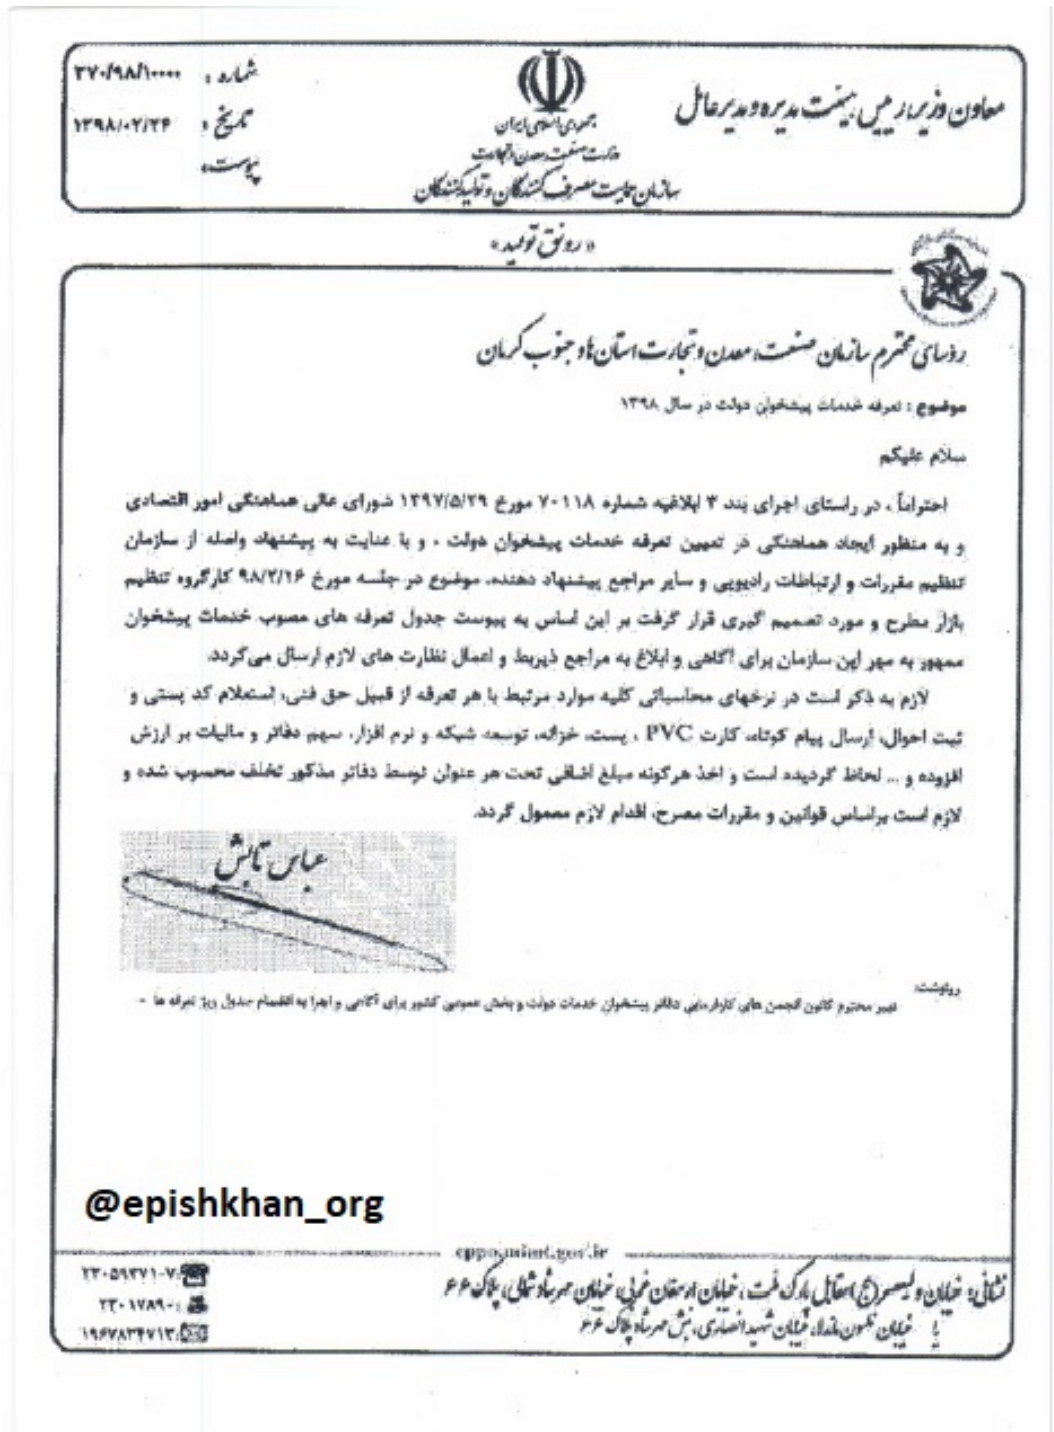 معاون وزیر، رییس هیئت مدیره و مدیرعامل
جمهوری اسلامی ایران
وزارت صنعت، معدن و تجارت
سازمان حمایت مصرف کنندگان و تولیدکنندگان
شماره : ۳۷۰/۹۸/۱۰۰۰۰
تاریخ : ۱۳۹۸/۰۲/۲۴
پیوست:
«رونق تولید»
رؤسای محترم سازمان صنعت، معدن و تجارت استان ها و جنوب کرمان
موضوع : تعرفه خدمات پیشخوان دولت در سال ۱۳۹۸
سلام علیکم
احتراماً ، در راستای اجرای بند ۳ ابلاغیه شماره ۷۰۱۱۸ مورخ ۱۳۹۷/۵/۲۹ شورای عالی هماهنگی امور اقتصادی
و به منظور ایجاد هماهنگی در تعیین تعرفه خدمات پیشخوان دولت ، و با عنایت به پیشنهاد واصله از سازمان
تنظیم مقررات و ارتباطات رادیویی و سایر مراجع پیشنهاد دهنده، موضوع در جلسه مورخ ۹۸/۲/۱۶ کارگروه تنظیم
بازار مطرح و مورد تصمیم گیری قرار گرفت بر این اساس به پیوست جدول تعرفه های مصوب خدمات پیشخوان
ممهور به مهر این سازمان برای آگاهی و ابلاغ به مراجع ذیربط و اعمال نظارت های لازم ارسال می‌گردد.
لازم به ذکر است در نرخهای محاسباتی کلیه موارد مرتبط با هر تعرفه از قبیل حق فنی، استعلام کد پستی و
ثبت احوال، ارسال پیام کوتاه، کارت PVC ، پست، خزانه، توسعه شبکه و نرم افزار، سهم دفاتر و مالیات بر ارزش
افزوده و ... لحاظ گردیده است و اخذ هرگونه مبلغ اضافی تحت هر عنوان توسط دفاتر مذکور تخلف محسوب شده و
لازم است براساس قوانین و مقررات مصرح، اقدام لازم معمول گردد.
عباس تابش
رونوشت:
محترم کانون انجمن های کارفرمایی دفاتر پیشخوان خدمات دولت و بخش عمومی کشور برای آگاهی و اجرا به انضمام جدول ریز تعرفه ها -
@epishkhan_org
cppo.mimt.gov.ir
نشانی: خیابان ولیعصر (عج) مقابل پارک ملت، خیابان ارمغان غربی، خیابان مهرشاد شمالی، پلاک ۶۶
یا خیابان نلسون ماندلا، خیابان شهید انصاری، نبش مهرشاد پلاک ۶۶
۲۳۰۵۹۳۷۱-۷
۲۲۰۱۷۸۹۰
۱۹۶۷۸۳۴۷۱۳